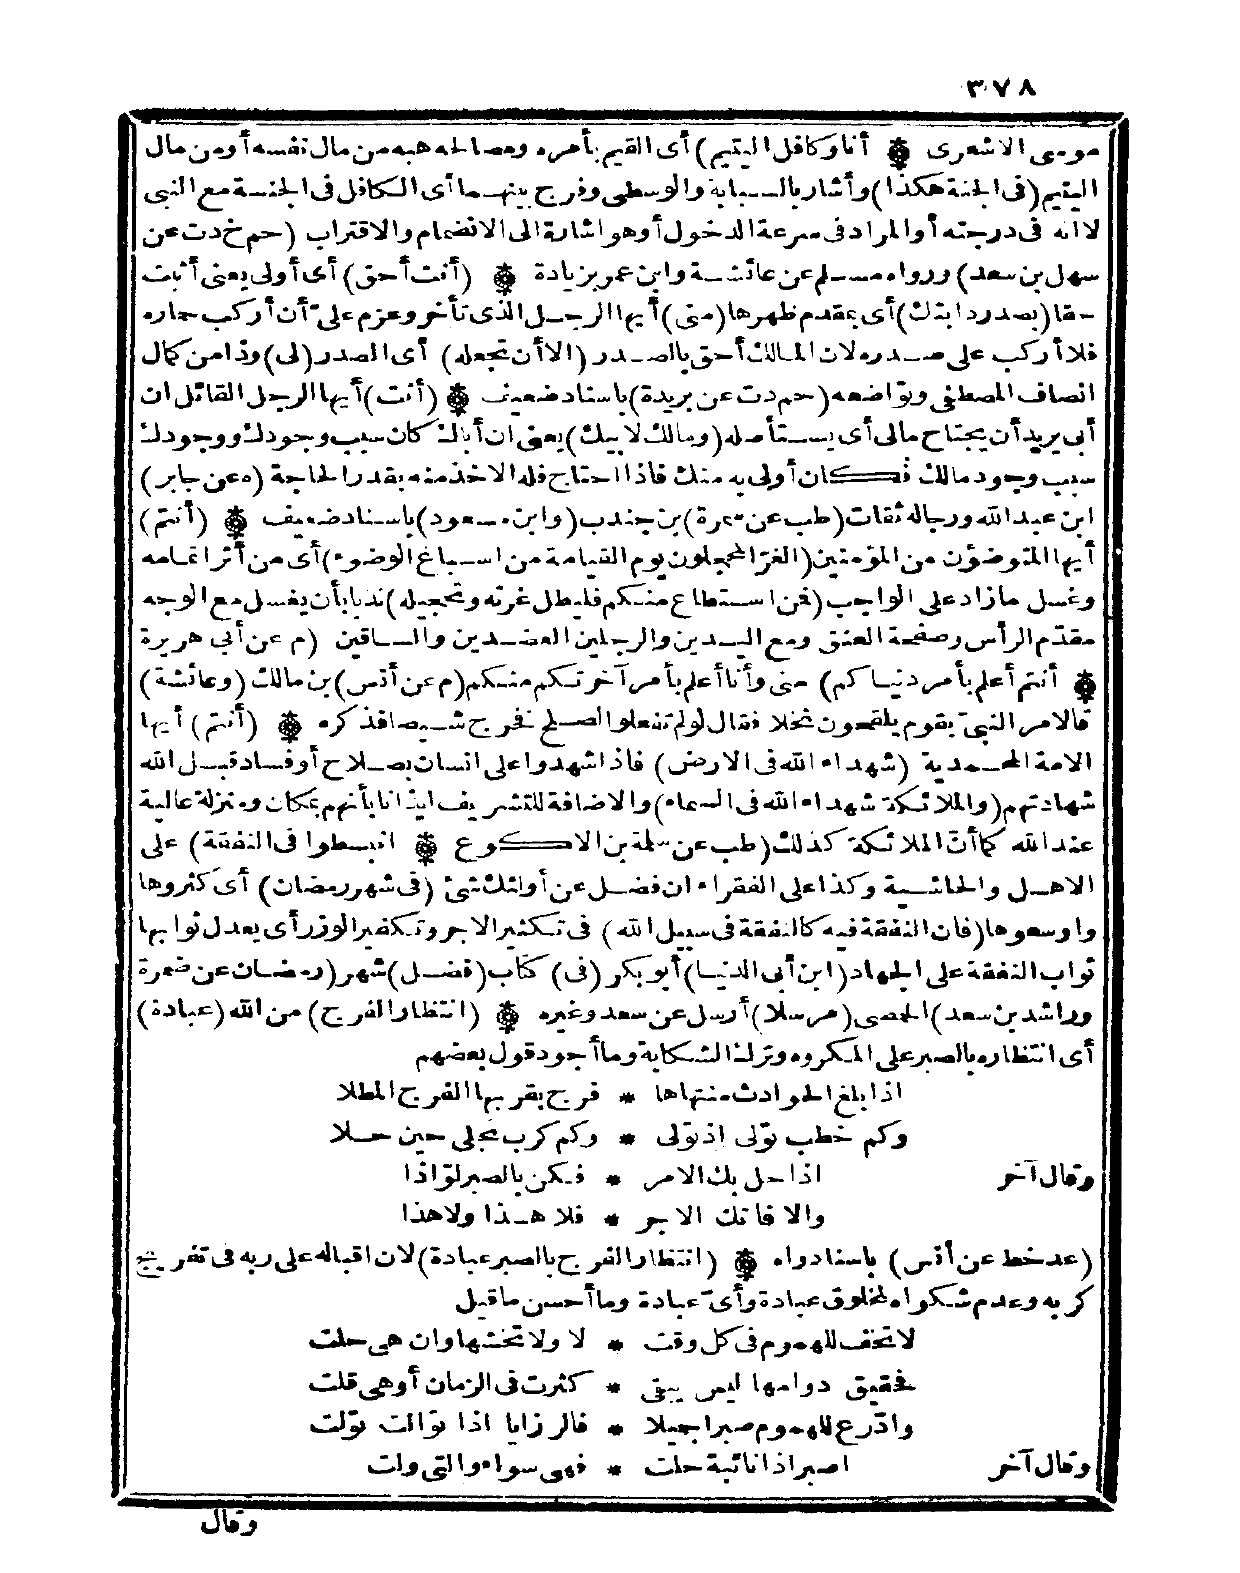 ٣٧٨
موسى الاشعرى ۞ أنا وكافل اليتيم) أى القيم بأمره ومصالحه هبه من مال نفسه أو من مال
اليتيم (فى الجنة هكذا) وأشار بالسبابة والوسطى وفرج بينهما أى الكافل فى الجنة مع النبى
لا انه فى درجته أو المراد فى سرعة الدخول أو هو اشارة الى الانضمام والاقتراب (حم خ د ت عن
سهل بن سعد) ورواه مسلم عن عائشة وابن عمر بزيادة ۞ (أنت أحق) أى أولى يعنى أثبت
حقا (بصدر دابتك) أى بمقدم ظهرها (منى) أيها الرجل الذى تأخر وعزم علىّ أن أركب حماره
فلا أركب على صدره لان المالك أحق بالصدر (الا أن تجعله) أى الصدر (لى) وذا من كمال
انصاف المصطفى وتواضعه (حم د ت عن بريدة) باسناد ضعيف ۞ (أنت) أيها الرجل القائل ان
أبى يريد أن يجتاح مالى أى يستأصله (ومالك لابيك) يعنى ان أباك كان سبب وجودك ووجودك
سبب وجود مالك فكان أولى به منك فاذا احتاج فله الاخذ منه بقدر الحاجة (ه عن جابر)
ابن عبد الله ورجاله ثقات (طب عن سمرة) بن جندب (وابن مسعود) باسناد ضعيف ۞ (أنتم)
أيها المتوضؤن من المؤمنين (الغرّ المحجلون يوم القيامة من اسباغ الوضوء) أى من أثر اتمامه
وغسل ما زاد على الواجب (فمن استطاع منكم فليطل غرته وتحجيله) ندبا بأن يغسل مع الوجه
مقدّم الرأس وصفحة العنق ومع اليدين والرجلين العضدين والساقين (م عن أبى هريرة
۞ أنتم أعلم بأمر دنياكم) منى وأنا أعلم بأمر آخرتكم منكم (م عن أنس) بن مالك (وعائشة)
قالا مر النبىّ بقوم يلقحون نخلا فقال لو لم تفعلوا لصلح فخرج شيصا فذكره ۞ (أنتم) أيها
الامة المحمدية (شهداء الله فى الارض) فاذا شهدوا على انسان بصلاح أو فساد قبل الله
شهادتهم (والملائكة شهداء الله فى السماء) والاضافة للتشريف ايذانا بأنهم بمكان ومنزلة عالية
عند الله كما أنّ الملائكة كذلك (طب عن سلمة بن الاكوع ۞ انبسطوا فى النفقة) على
الاهل والحاشية وكذا على الفقراء ان فضل عن أولئك شئ (فى شهر رمضان) أى كثروها
واوسعوها (فان النفقة فيه كالنفقة فى سبيل الله) فى تكثير الاجر وتكفير الوزر أى يعدل ثوابها
ثواب النفقة على الجهاد (ابن أبى الدنيا) أبو بكر (فى) كتاب (فضل) شهر (رمضان عن ضمرة
وراشد بن سعد) الحمصى (مرسلا) أرسل عن سعد وغيره ۞ (انتظار الفرج) من الله (عبادة)
أى انتظاره بالصبر على المكروه وترك الشكاية وما أجود قول بعضهم
اذا بلغ الحوادث منتهاها * فرج بقربها الفرج المطلا
وكم خطب تولى اذ تولى * وكم كرب تجلى حين حلا
وقال آخر اذا حل بك الامر * فكن بالصبر لوّاذا
والا فاتك الاجر * فلا هذا ولا هذا
(عد خط عن أنس) باسناد واه ۞ (انتظار الفرج بالصبر عبادة) لان اقباله على ربه فى تفريج
كربه وعدم شكواه لمخلوق عبادة وأىّ عبادة وما أحسن ما قيل
لا تخف للهموم فى كل وقت * لا ولا تخشها وان هى حلت
فحقيق دوامها ليس يبقى * كثرت فى الزمان أو هى قلت
وادّرع للهموم صبرا جميلا * فالرزايا اذا توالت تولت
وقال آخر اصبر اذا نائبة حلت * فهى سواء والتى ولت
وقال